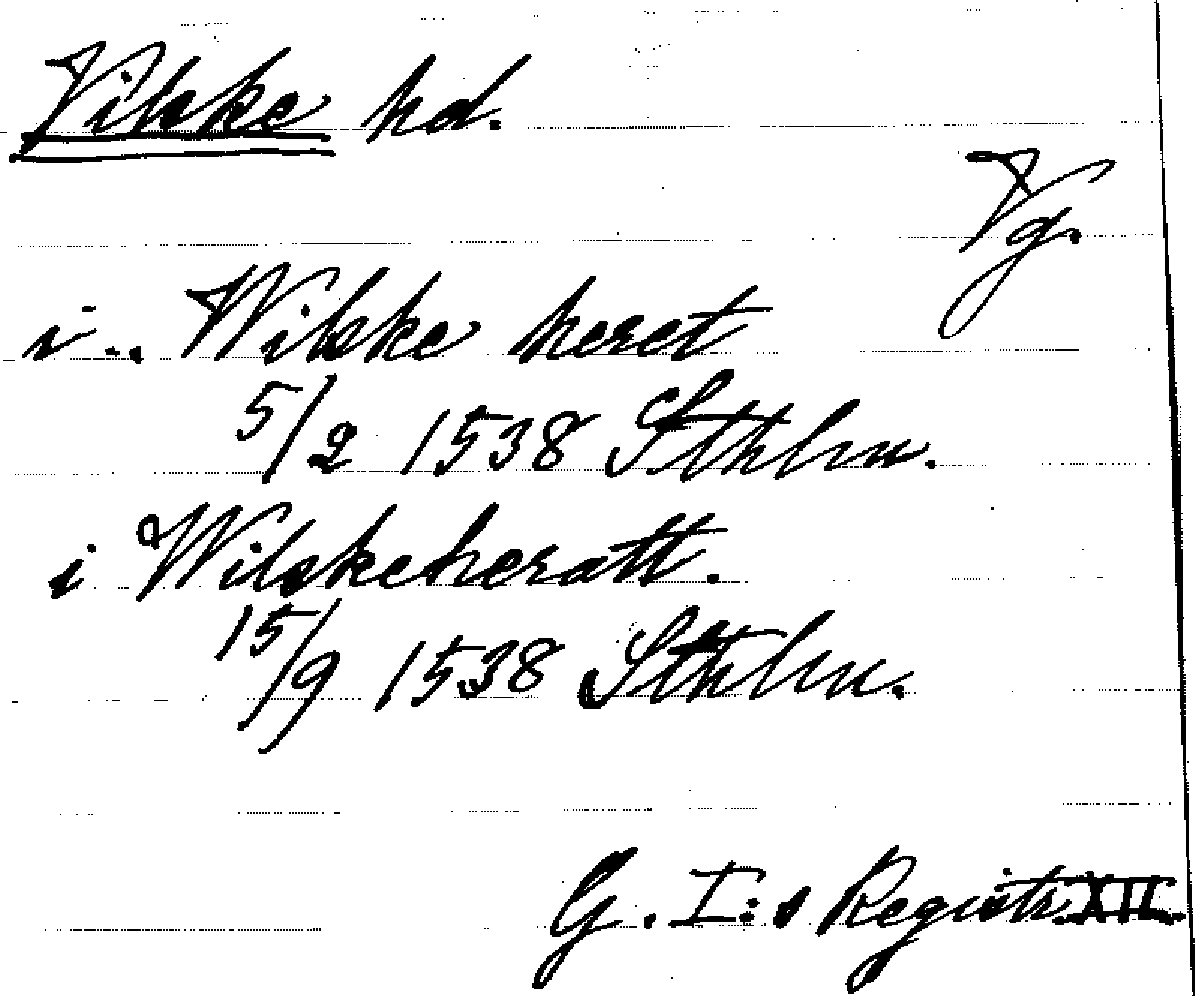 Vilske hd.
Vg.
i .. Wilske heret
5/2 1538 Sthlm.
i Wilskeheratt.
15/9 1538 Sthlm.
G. I:s Registr. XII.